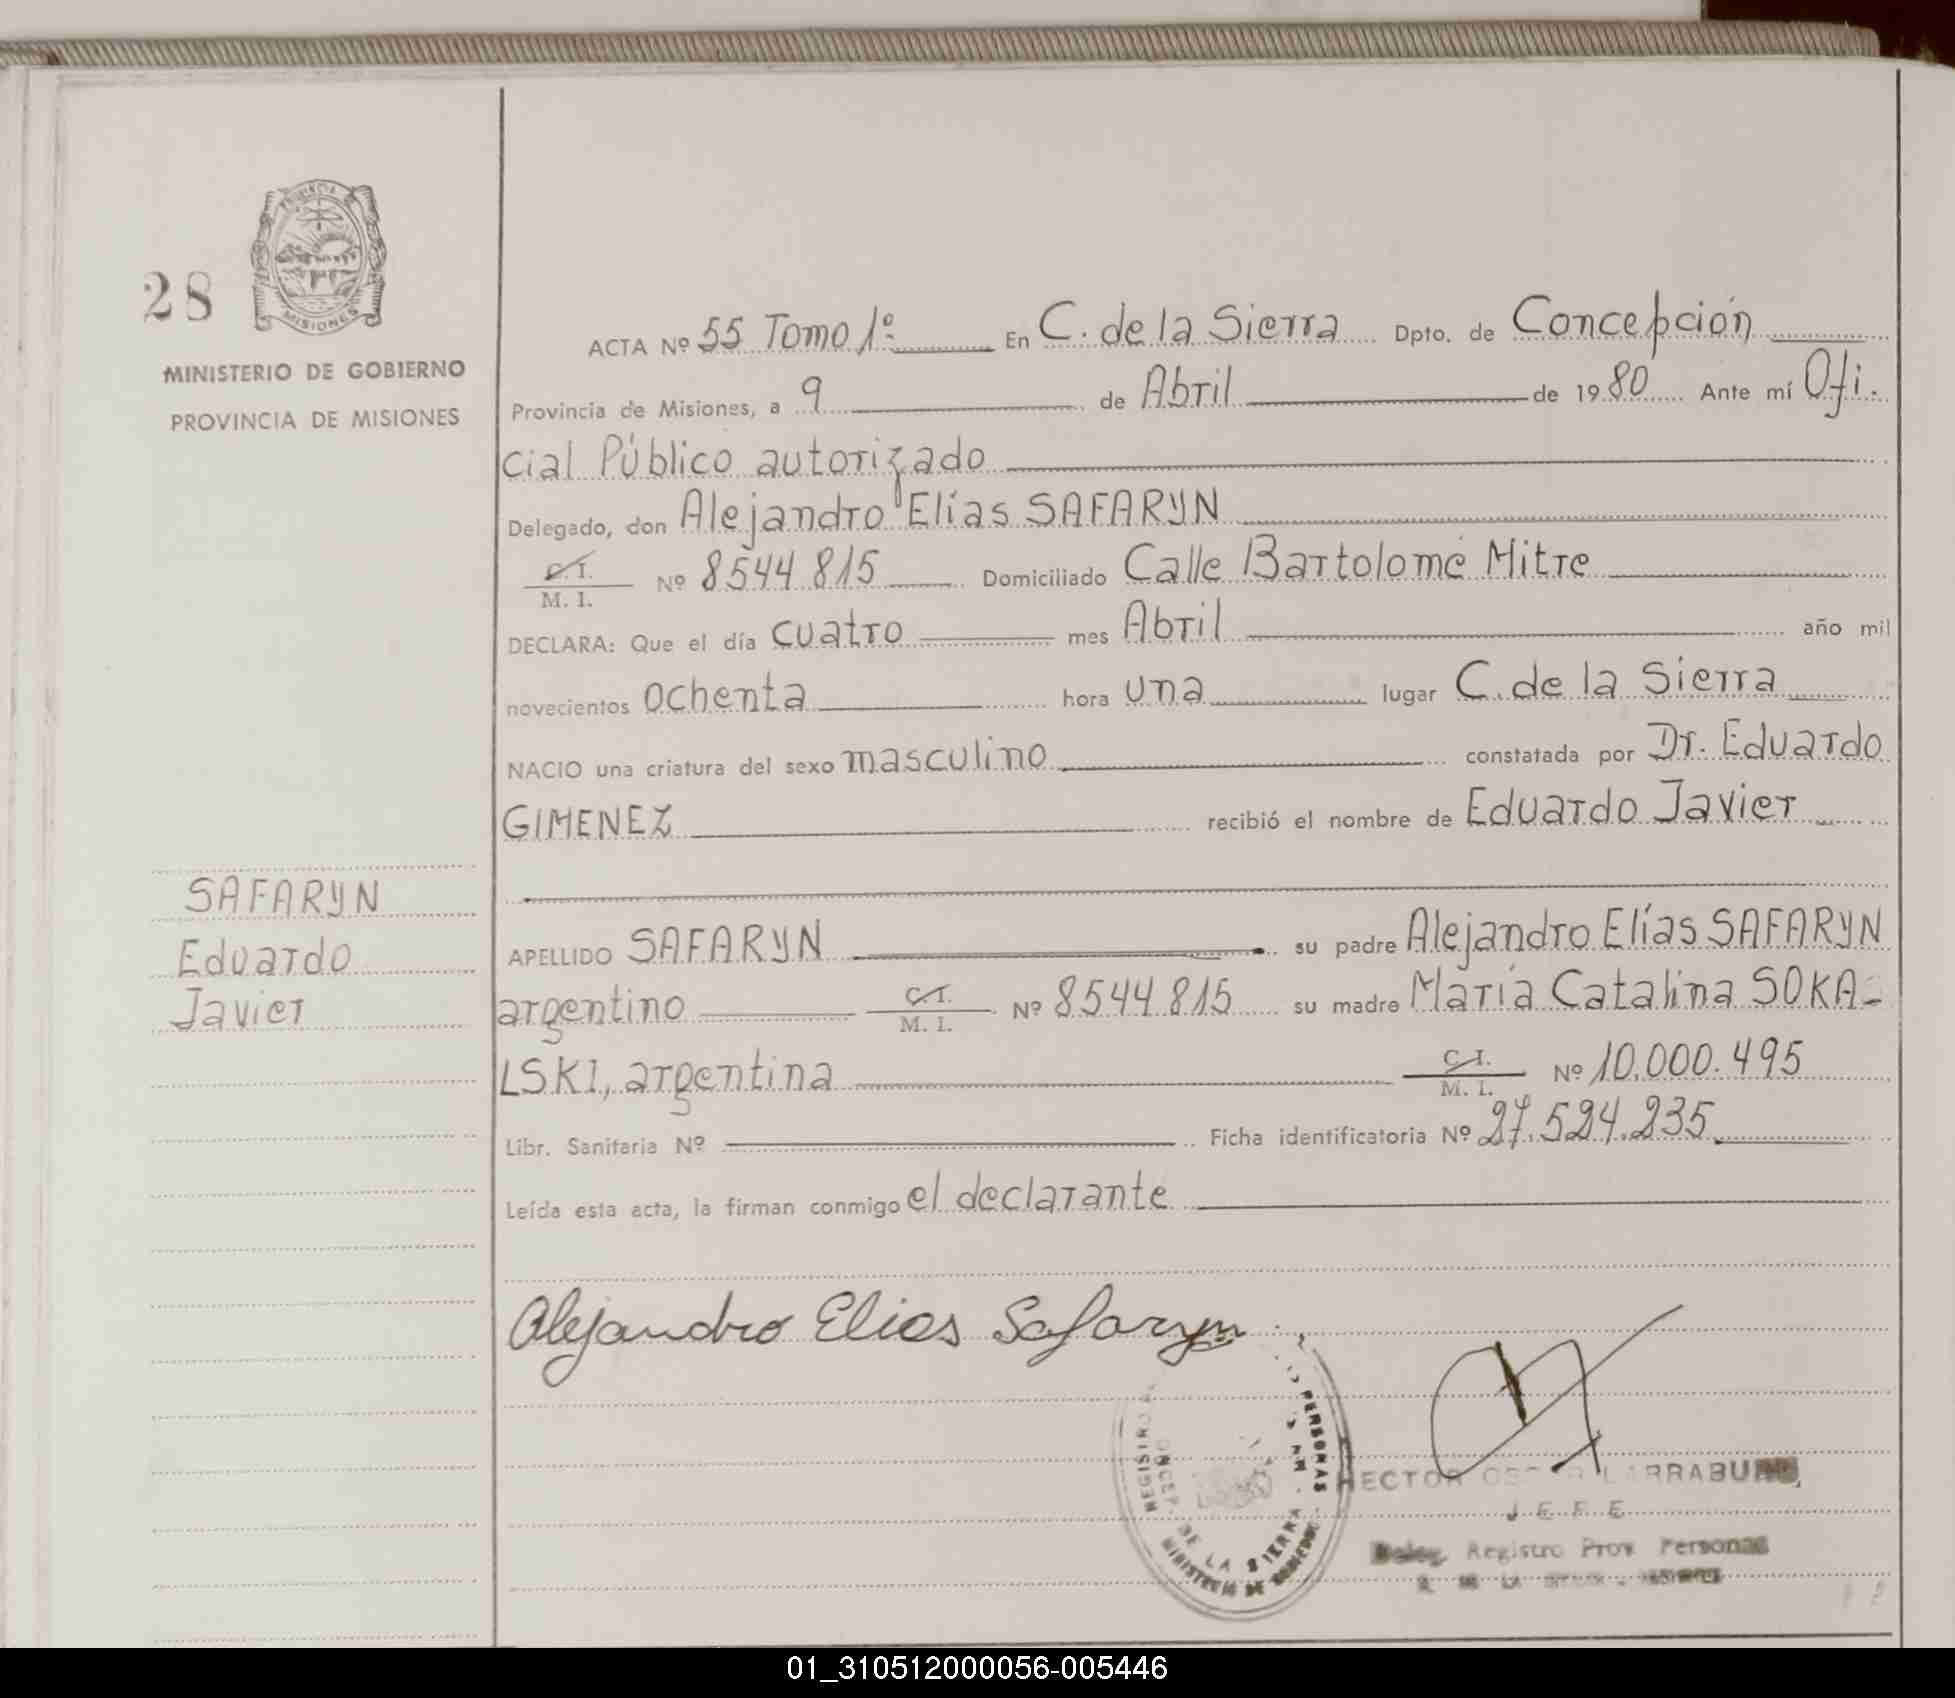 PROVINCIA
MISIONES
28
MINISTERIO DE GOBIERNO
PROVINCIA DE MISIONES
SAFARYN
Eduardo
Javier
ACTA Nº 55 Tomo 1º En C. de la Sierra Dpto. de Concepción
Provincia de Misiones, a 9 de Abril de 1980 Ante mí Ofi-
cial Público autorizado
Delegado, don Alejandro Elías SAFARYN
C. I.
M. I. Nº 8544.815 Domiciliado Calle Bartolomé Mitre
DECLARA: Que el día cuatro mes Abril año mil
novecientos ochenta hora una lugar C. de la Sierra
NACIO una criatura del sexo masculino constatada por Dr. Eduardo
GIMENEZ recibió el nombre de Eduardo Javier
APELLIDO SAFARYN su padre Alejandro Elías SAFARYN
argentino C. I. M. I. Nº 8544.815 su madre María Catalina SOKA-
LSKI, argentina C. I. M. I. Nº 10.000.495
Libr. Sanitaria Nº Ficha identificatoria Nº 27.524.235
Leída esta acta, la firman conmigo el declarante
Alejandro Elias Safaryn
REGISTRO PERSONAS
DE LA SIERRA
MINISTERIO DE GOBIERNO
HECTOR
JEFE
Deleg. Registro Prov Personas
01_310512000056-005446